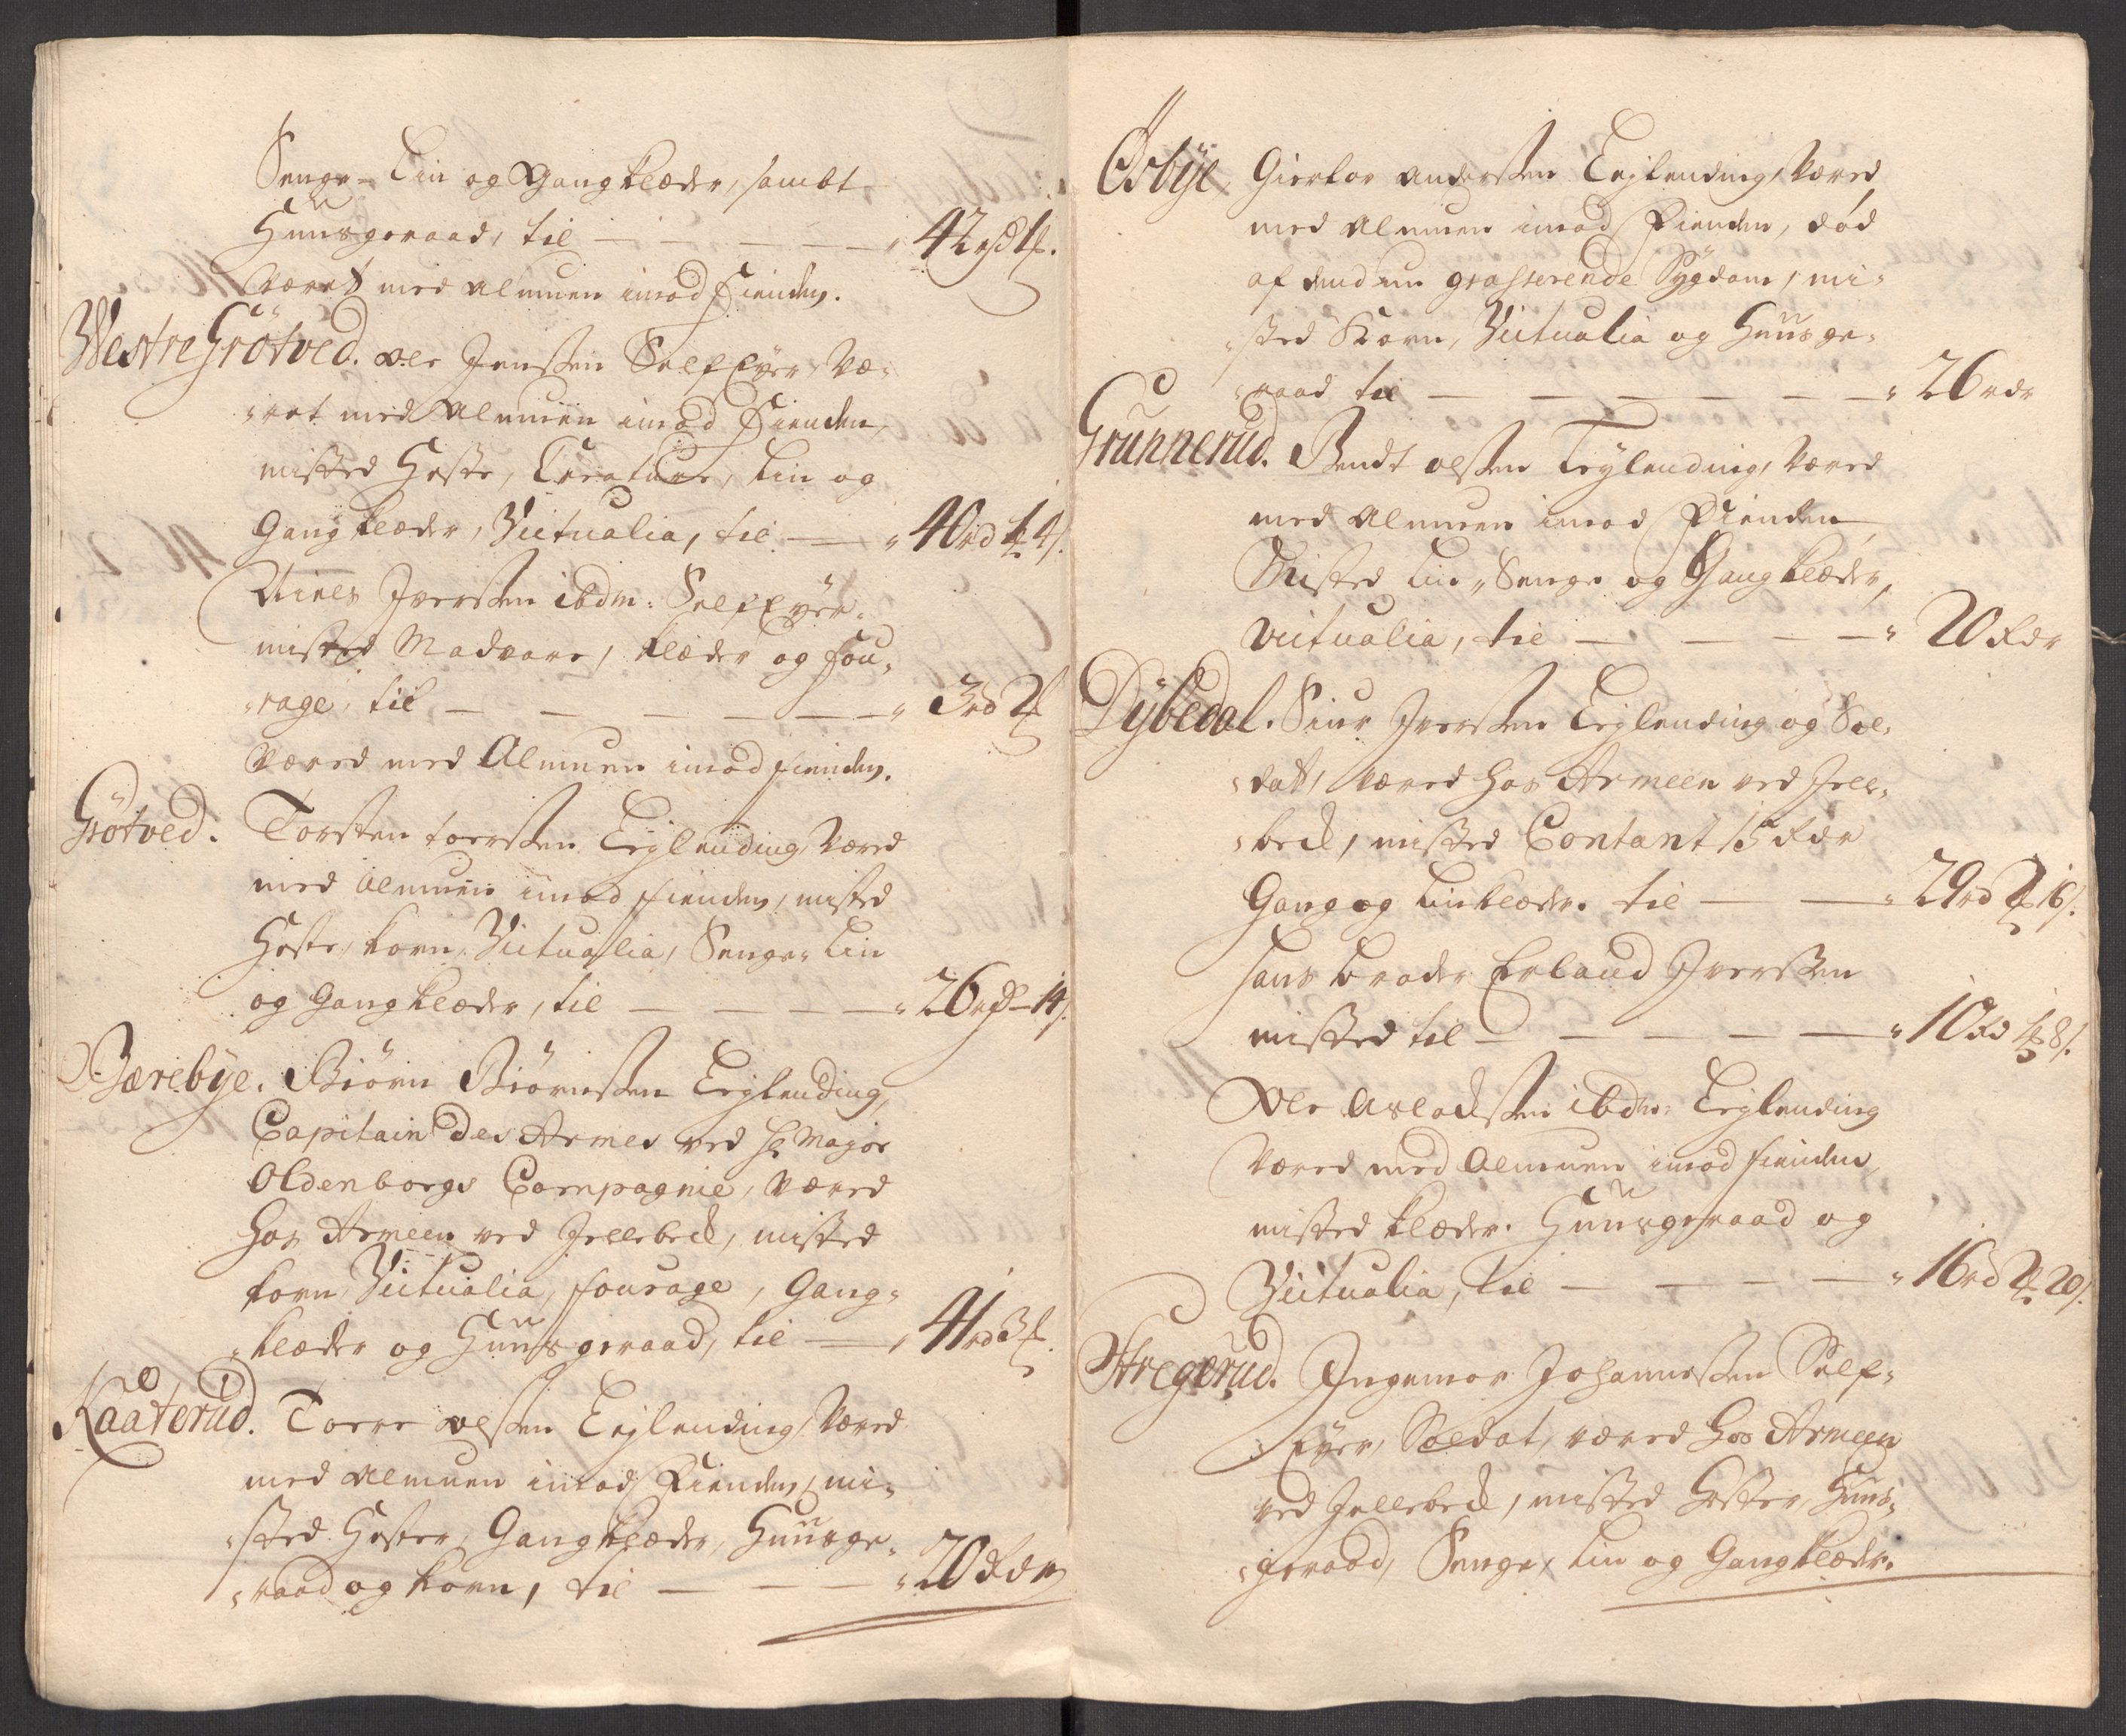 Senge- Lin og Gangklæder, sambt
Huusgeraad, til — — — — — " 42 rd 1 f.
Været med Almuen imod Fienden.
Westre Grötved. Ole Jenssen Selfeyer, Væ-
ret med Almuen imod Fienden,
misted Heste, Creature, Lin og
Gangklæder, Victualia, til — " 40 rd 1
Iverssen ibdm: Selfeyer-
misted Madvare, klæder og fou-
rage, til — — — — — — " 3 rd 2
Været med Almuen imod fienden.
Grötved. Torsten Toerssen Leylending, Været
med Almuen imod fienden, misted
Heste, korn, Victualia, Senge- Lin
og Gangklæder, til — — — — " 26 rd - 14 s.
Bærebye. Biörn Biörnssen Leylending,
Capitain des Armes ved Hr Major
Oldenborgs Compagnie, Været
hos Armeen ved Jellebeck, misted
korn, Victualia, fourage, Gang-
klæder og Huusgeraad, til — " 41 rd 3
Kaaterud. Toere Olssen Leylending, Været
med Almuen imod Fienden, mi-
sted Hester, Gangklæder, Huusge-
raad og korn, til — — — " 20 rdr
Österbye, Anderssen Leylending, Været
med Almuen imod Fienden, död
af dend nu grasserende Sygdom, mi-
sted Korn, Victualia og Huusge-
raad til — — — — — — " 26 rdr
Grunnerud. Bendt Olssen Leylending, Været
med Almuen imod Fienden
Misted Lin, Senge og Gangklæder,
Victualia, til — — — — " 20 rdr
Dybedal. Siur Iverssen Leylending og Sol-
dat, Været hos Armeen ved Jelle-
beck, misted Contant 15 rdr
Gang og Linklæder. til — — " 29 rd 2 16 s.
hans broder Erland Iverssen
misted til — — — — — " 10 rd 1 8 s.
Ole Aslackssen ibdm: Leylending
Været med Almuen imod fienden,
misted klæder. Huusgeraad og
Victualia, til — — — — " 16 rd 2 20 s.
Stregerud. Ingemor Johannessen Self-
Eyer, Soldat, været hos Armeen
ved Jellebeck, misted Hester, Huus-
geraad, Senge, Lin og Gangklæder.